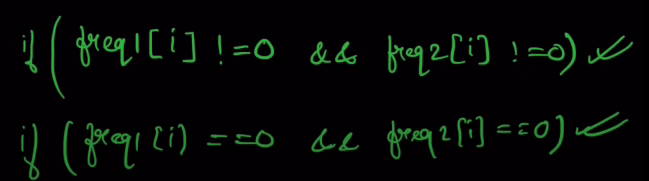 if (freq1[i] !=0 && freq2[i] !=0) ✓
if (freq1[i) ==0 && freq2[i] ==0) ✓